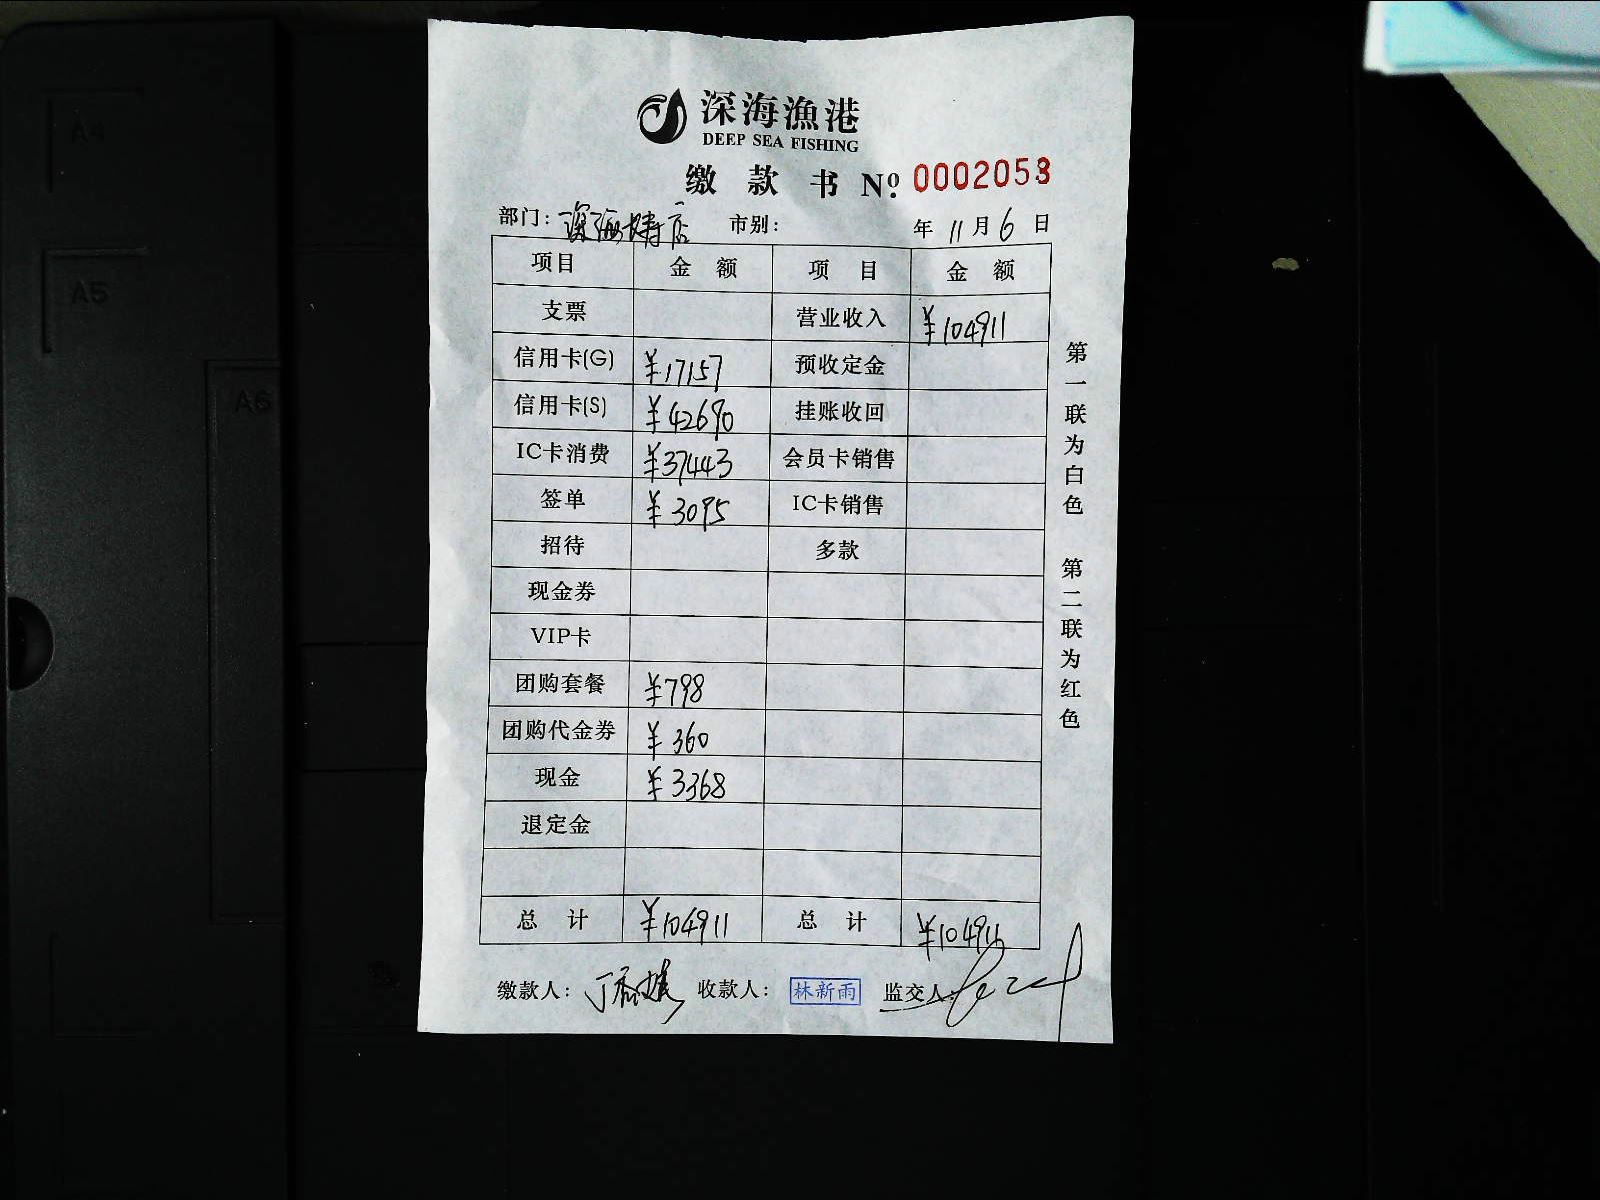 A4
A5
A6
深海漁港
DEEP SEA FISHING
缴 款 书 Nº: 0002053
部门: 店 市别: 年 11 月 6 日
项目 金 额 项 目 金 额
支票 营业收入 ¥104911
信用卡(G) ¥17157 预收定金
信用卡(S) ¥42690 挂账收回
IC卡消费 ¥37443 会员卡销售
签单 ¥3095 IC卡销售
招待 多款
现金券
VIP卡
团购套餐 ¥798
团购代金券 ¥360
现金 ¥3368
退定金
总 计 ¥104911 总 计 ¥104911
缴款人: 收款人: 林新雨 监交人:
第一联为白色 第二联为红色